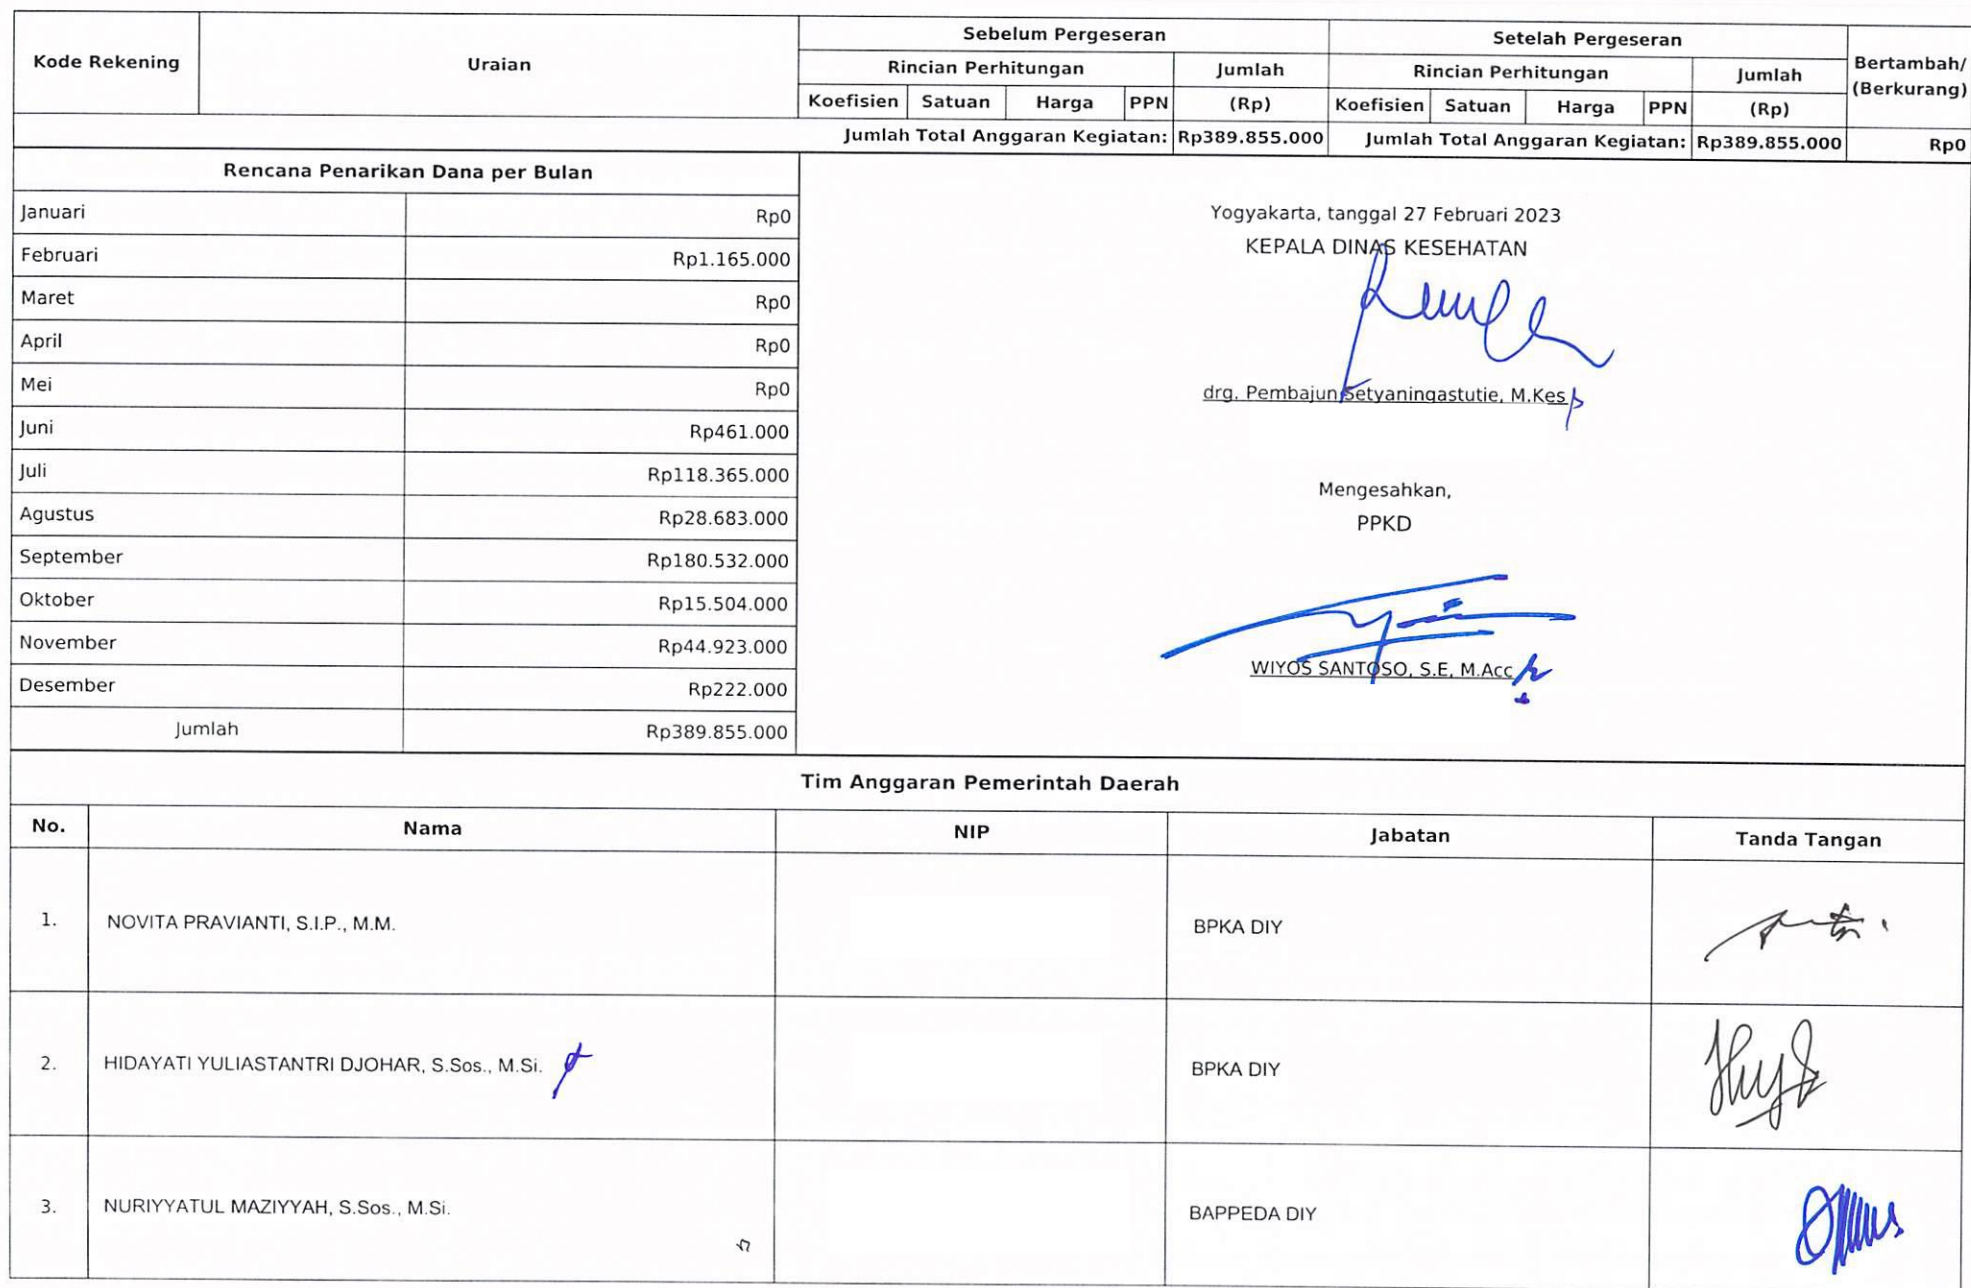 Kode Rekening Uraian Sebelum Pergeseran Setelah Pergeseran Bertambah/ (Berkurang)
Rincian Perhitungan Jumlah Rincian Perhitungan Jumlah
Koefisien Satuan Harga PPN (Rp) Koefisien Satuan Harga PPN (Rp)
Jumlah Total Anggaran Kegiatan: Rp389.855.000 Jumlah Total Anggaran Kegiatan: Rp389.855.000 Rp0
Rencana Penarikan Dana per Bulan
Januari Rp0
Februari Rp1.165.000
Maret Rp0
April Rp0
Mei Rp0
Juni Rp461.000
Juli Rp118.365.000
Agustus Rp28.683.000
September Rp180.532.000
Oktober Rp15.504.000
November Rp44.923.000
Desember Rp222.000
Jumlah Rp389.855.000
Yogyakarta, tanggal 27 Februari 2023
KEPALA DINAS KESEHATAN
drg. Pembajun Setyaningastutie, M.Kes
Mengesahkan,
PPKD
WIYOS SANTOSO, S.E, M.Acc
Tim Anggaran Pemerintah Daerah
No. Nama NIP Jabatan Tanda Tangan
1. NOVITA PRAVIANTI, S.I.P., M.M. BPKA DIY
2. HIDAYATI YULIASTANTRI DJOHAR, S.Sos., M.Si. BPKA DIY
3. NURIYYATUL MAZIYYAH, S.Sos., M.Si. BAPPEDA DIY